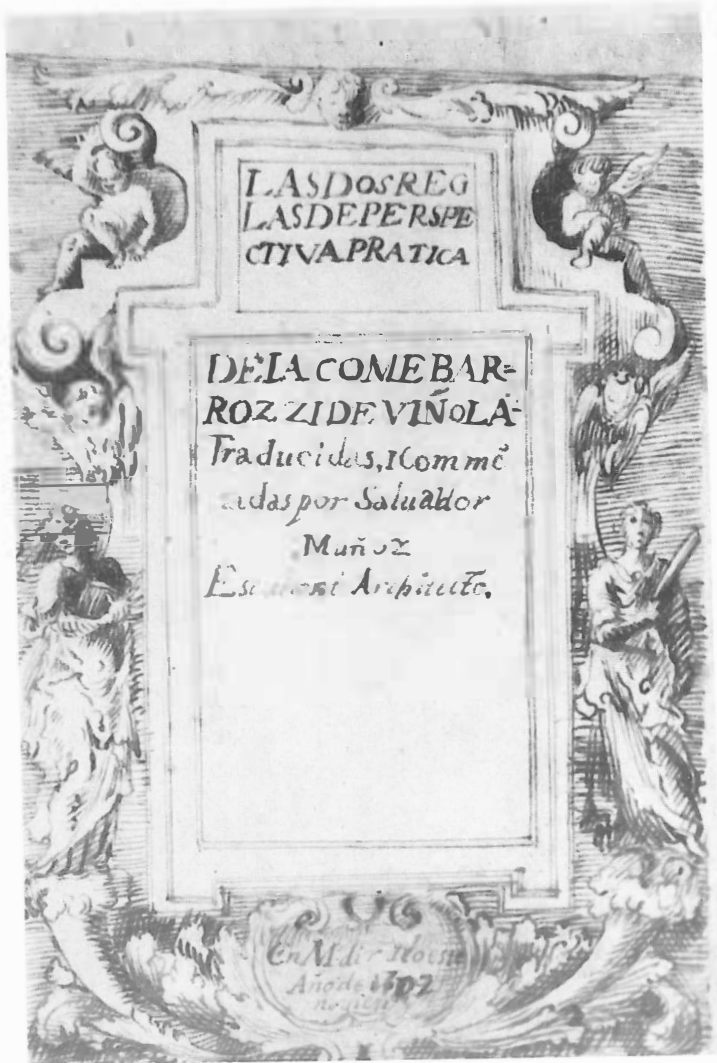 LAS DOS REG
LAS DE PERSPE
CTIVA PRATICA
DE IACOME BAR=
ROZZI DE VIÑOLA
Traducidas, i Commē
tadas por Saluador
Muñoz
Architecto.
En
Año de